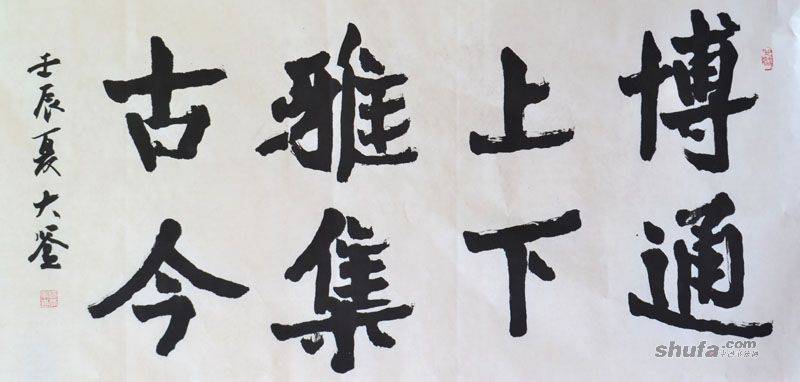 博通
上下
雅集
古今
壬辰夏大鉴
shufa.com